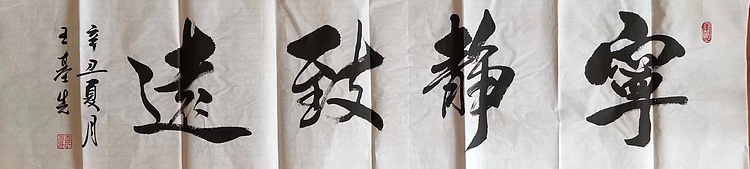 寧靜致遠
辛丑夏月
王基先